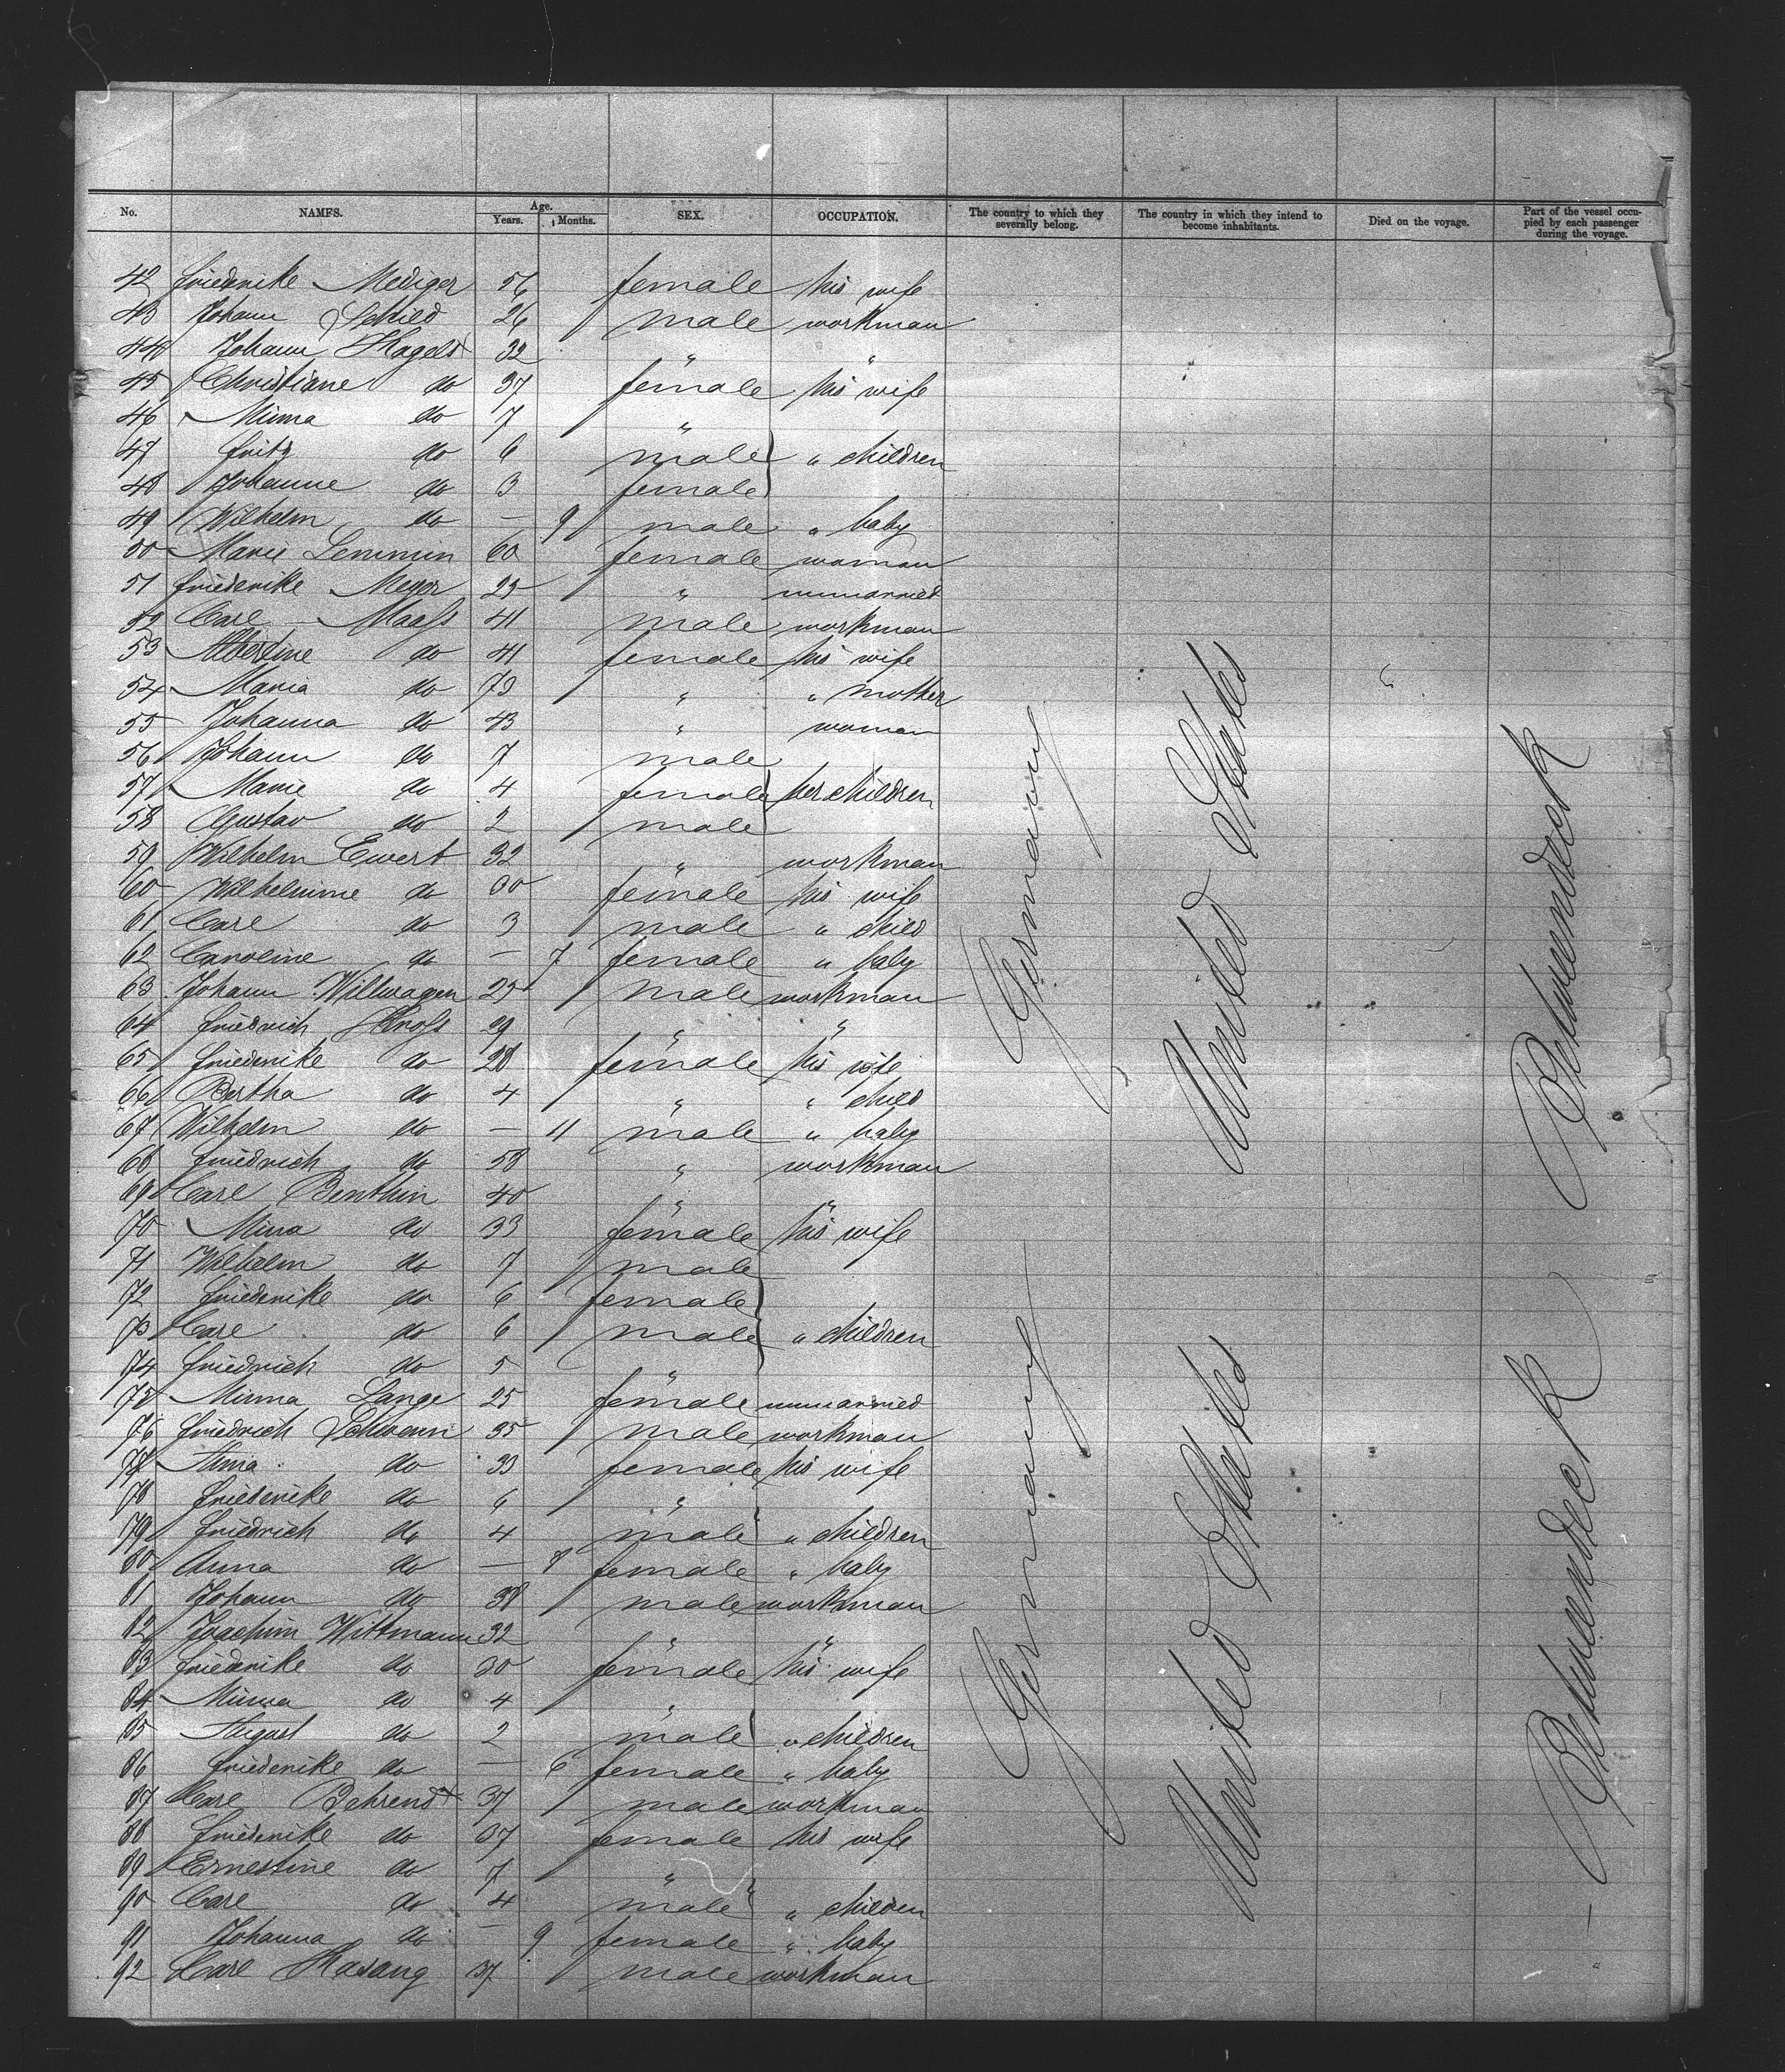 No. NAMES. Age. Years. Months. SEX. OCCUPATION. The country to which they severally belong. The country in which they intend to become inhabitants. Died on the voyage. Part of the vessel occupied by each passenger during the voyage.
42 Friederike Mediger 56 female his wife
43 Johann Schied 26 male workman
44 Johann 32 " "
45 Christiane do 37 female his wife
46 Minna do 7 "
47 Fritz do 6 male " children
48 Johanne do 3 female
49 Wilhelm do — 9 male " baby
50 Marie Lemmin 60 female woman
51 Friederike Meyer 25 " unmarried
52 Carl Maaſs 41 male workman
53 Albertine do 41 female his wife
54 Maria do 73 " " mother
55 Johanna do 43 " woman
56 Johann do 7 male
57 Marie do 4 female her children
58 Gustav do 2 male
59 Wilhelm Ewert 32 " workman
60 Wilhelmine do 30 female his wife
61 Carl do 3 male " child
62 Caroline do — 7 female " baby
63 Johann Willwagen 25 male workman
64 Friedrich 29 " "
65 Friederike do 28 female his wife
66 Bertha do 4 " " child
67 Wilhelm do — 11 male " baby
68 Friedrich do 58 " workman
69 Carl Benthin 40 " "
70 Mina do 33 female his wife
71 Wilhelm do 7 male
72 Friederike do 6 female
73 Carl do 6 male " children
74 Friedrich do 5 "
75 Minna Lange 25 female unmarried
76 Friedrich Schwenn 35 male workman
77 do 33 female his wife
78 Friederike do 6 "
79 Friedrich do 4 male " children
80 Anna do — 7 female " baby
81 Johann do 38 male workman
82 Joachim Wittmann 32 " "
83 Friederike do 30 female his wife
84 Minna do 4 "
85 August do 2 male " children
86 Friederike do — 6 female " baby
87 Carl Behrendt 37 male workman
88 Friederike do 37 female his wife
89 Ernestine do 7 "
90 Carl do 4 male " children
91 Johanna do — 9 female " baby
92 Carl Hasang 37 male workman
Germany
United States
Betweendeck
Germany
United States
Betweendeck